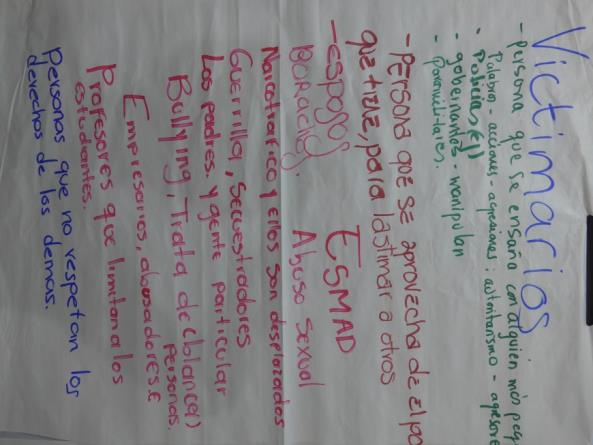 Victimarios
- persona que se ensaña con alguien más
Palabra - acciones - agresiones: autoritarismo -
• Policias, ej)
- gobernantes - manipulan
- Paramilitares.
- Persona que se aprovecha de
que tiene, para lastimar a otros
- esposos ESMAD
Borachos. Abuso sexual
Narcotrafico y ellos son desplazados
Guerrilla, Secuestradores
Los padres. y gente particular
Bullying, Trata de (blanca()
Personas.
Empresarios, abusadores.e
Profesores que limitan a los
estudiantes.
Personas que no respetan los
derechos de los demas.